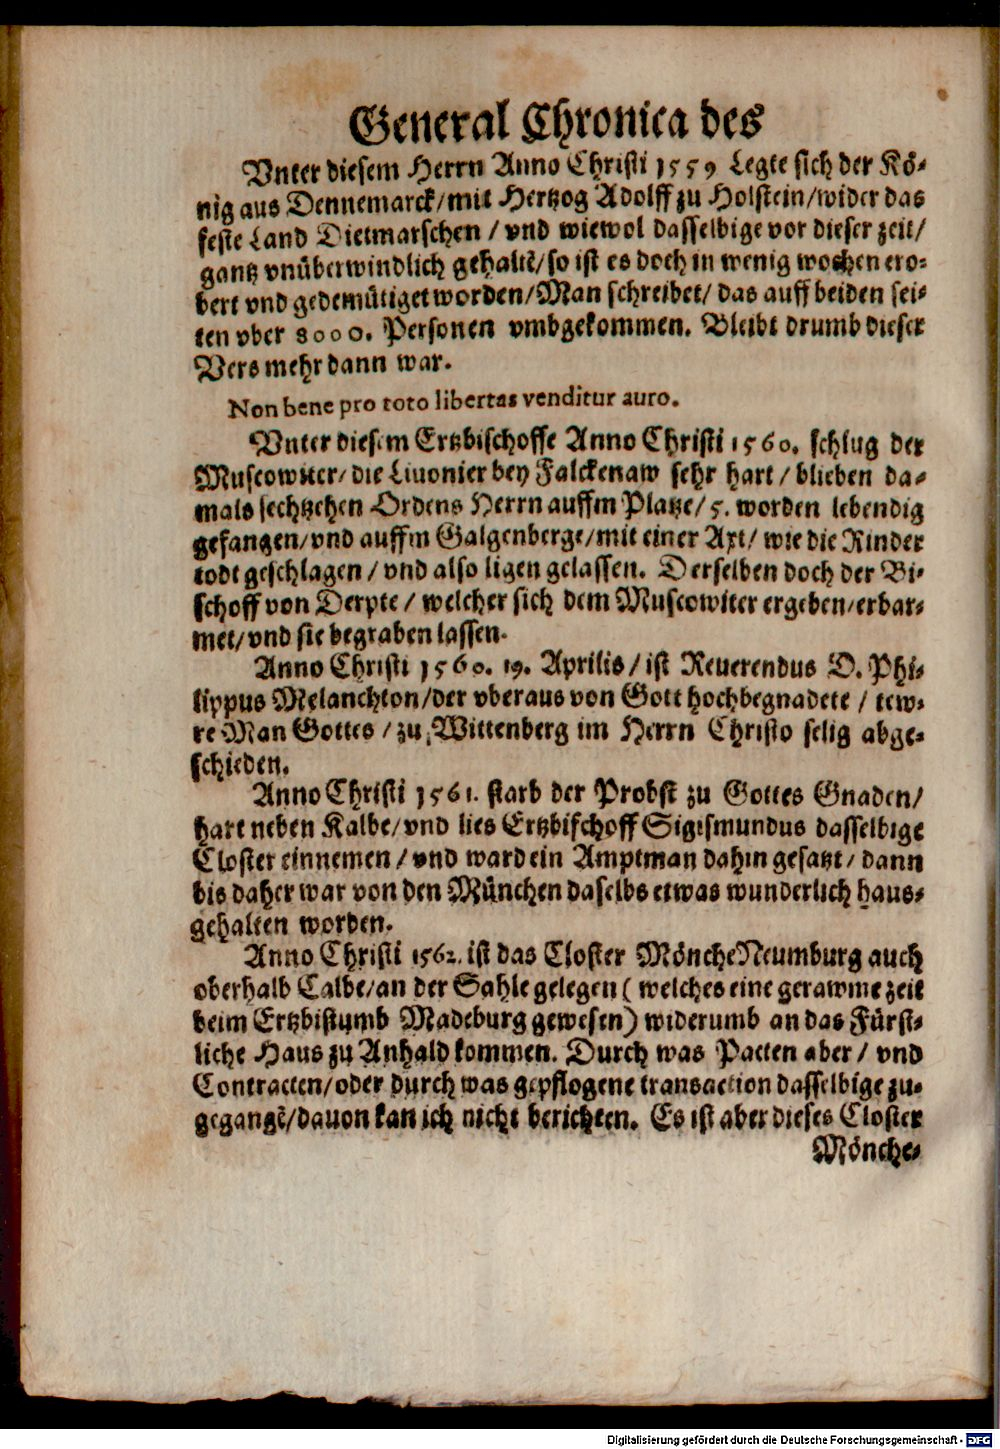 General Chronica des
Vnter diesem Herrn Anno Christi 1559 Legte sich der Kö-
nig aus Dennemarck/mit Hertzog Adolff zu Holstein/wider das
feste Land Dietmarschen / vnd wiewol dasselbige vor dieser zeit/
gantz vnüberwindlich gehaltē/so ist es doch in wenig wochen ero-
bert vnd gedemütiget worden/Man schreibet/ das auff beiden sei-
ten vber 8000. Personen vmbgekommen. Bleibt drumb dieser
Vers mehr dann war.
Non bene pro toto libertas venditur auro.
Vnter diesem Ertzbischoffe Anno Christi 1560. schlug der
Muscowiter/ die Liuonier bey Falckenaw sehr hart / blieben da-
mals sechtzehen Ordens Herrn auffm Platze/ 5. worden lebendig
gefangen/vnd auffm Galgenberge/mit einer Axt/ wie die Rinder
todt geschlagen / vnd also ligen gelassen. Derselben doch der Bi-
schoff von Derpte / welcher sich dem Muscowiter ergeben/erbar-
met/vnd sie begraben lassen.
Anno Christi 1560. 19. Aprilis/ ist Reuerendus D. Phi-
lippus Melanchton/der vberaus von Gott hochbegnadete / tew-
re Man Gottes / zu Wittenberg im Herrn Christo selig abge-
schieden.
Anno Christi 1561. starb der Probst zu Gottes Gnaden/
hart neben Kalbe/vnd lies Ertzbischoff Sigismundus dasselbige
Closter einnemen / vnd ward ein Amptman dahin gesatzt/ dann
bis daher war von den München daselbs etwas wunderlich haus-
gehalten worden.
Anno Christi 1562. ist das Closter MöncheNeumburg auch
oberhalb Calbe/an der Sahle gelegen ( welches eine gerawme zeit
beim Ertzbistumb Madeburg gewesen) widerumb an das Fürst-
liche Haus zu Anhald kommen. Durch was Pacten aber / vnd
Contracten/oder durch was gepflogene transaction dasselbige zu-
gegangē/dauon kan ich nicht berichten. Es ist aber dieses Closter
Mönche-
Digitalisierung gefördert durch die Deutsche Forschungsgemeinschaft - DFG